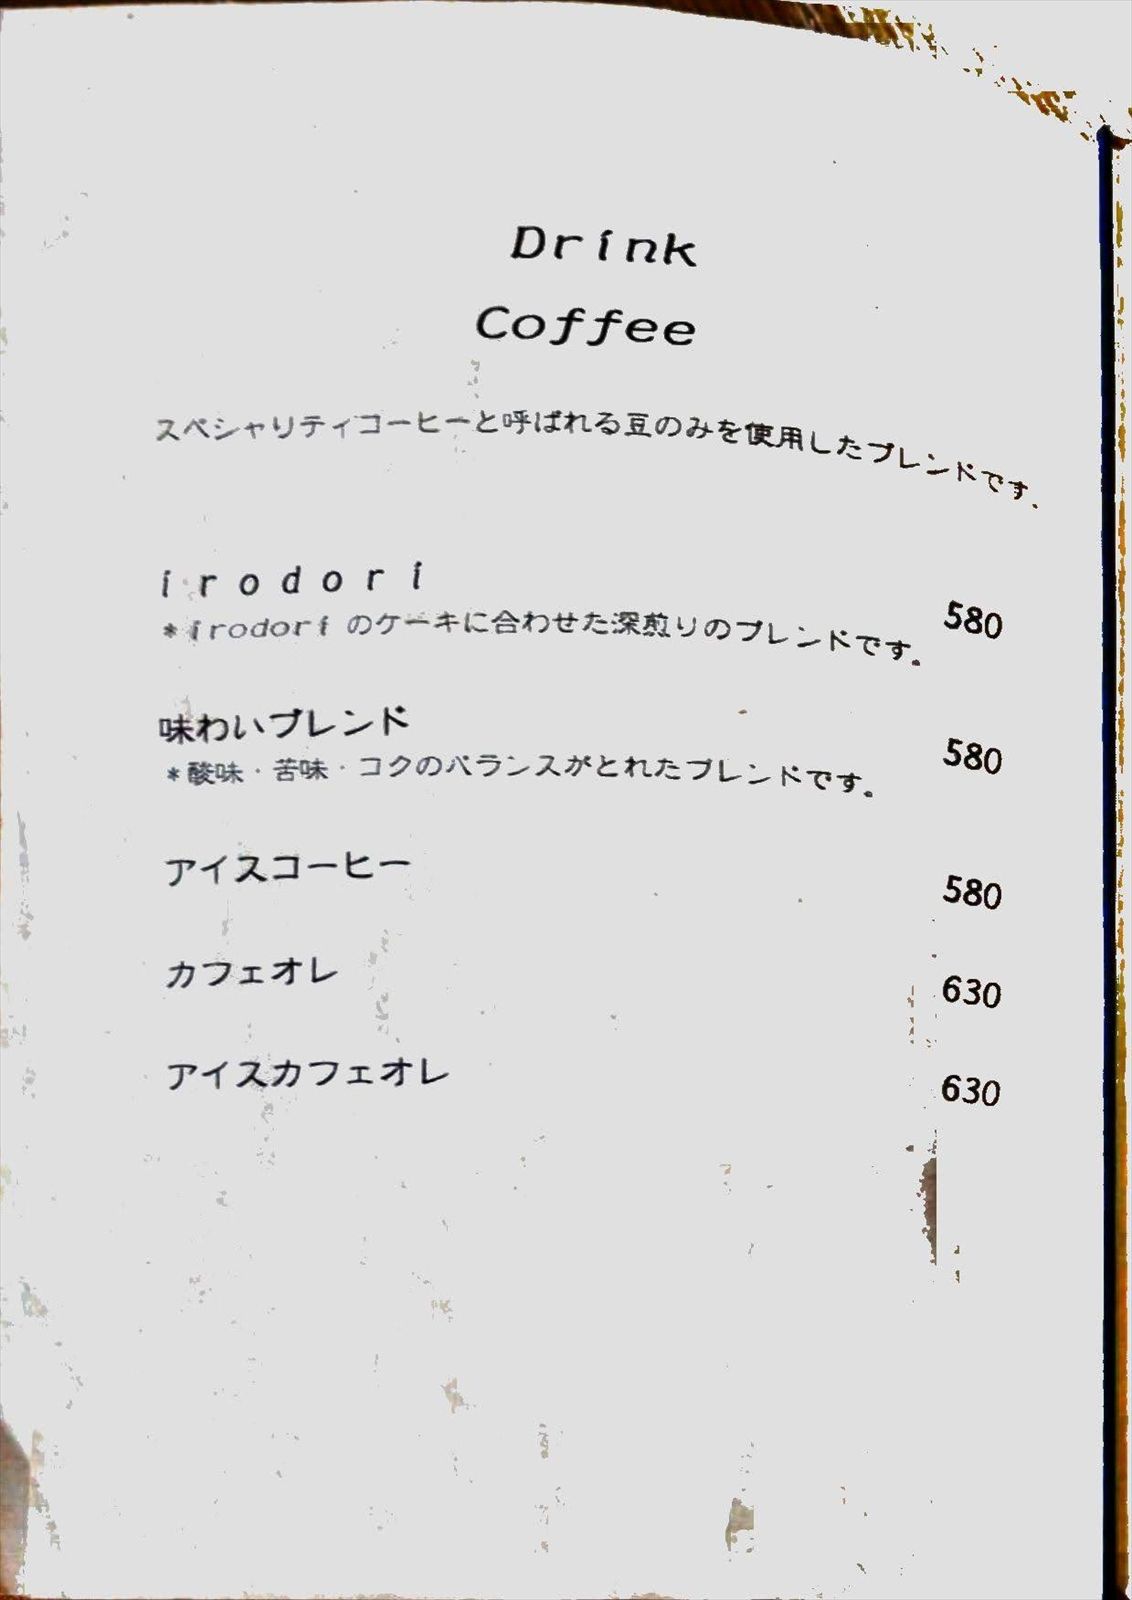 Drink
Coffee
スペシャリティコーヒーと呼ばれる豆のみを使用したブレンドです.
irodori
580
*irodoriのケーキに合わせた深煎りのブレンドです。
味わいブレンド
580
*酸味・苦味・コクのバランスがとれたブレンドです。
アイスコーヒー
580
カフェオレ
630
アイスカフェオレ
630